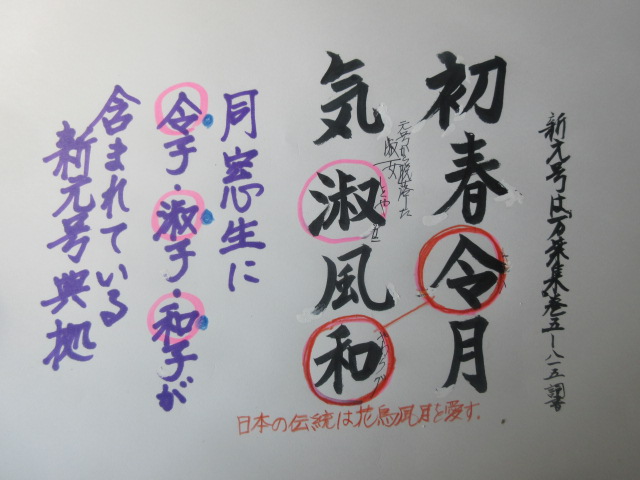 新元号は万葉集巻五ー八一五調書
初春令月
気淑風和
元号に脱落た
淑女
同窓生に
令子・淑子・和子が
含まれている
新元号典拠
日本の伝統は花鳥風月を愛す.